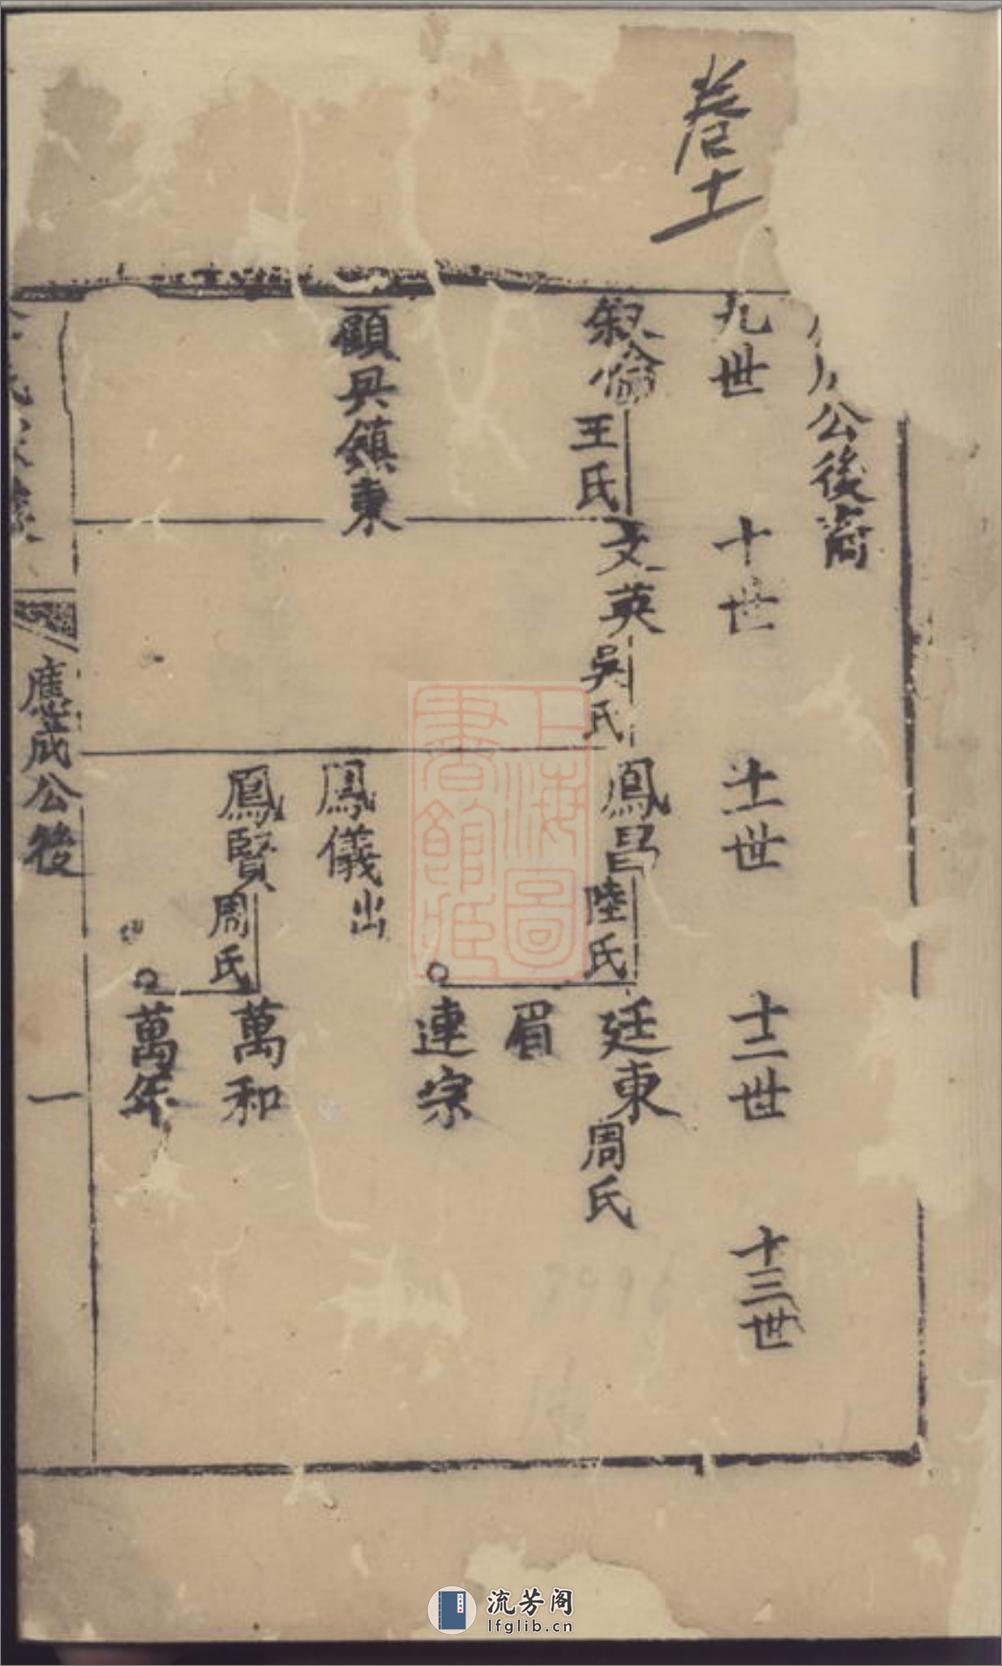 卷十一
公後裔
九世
十世
十一世
十二世
十三世
叙倫
王氏
文英
吳氏
鳳昌
陸氏
廷東
周氏
眉
連宗
顧兵鎮東
鳳儀出
鳳賢
周氏
萬和
萬年
應成公後
一
上海圖
書館藏
流芳阁
lfglib.cn